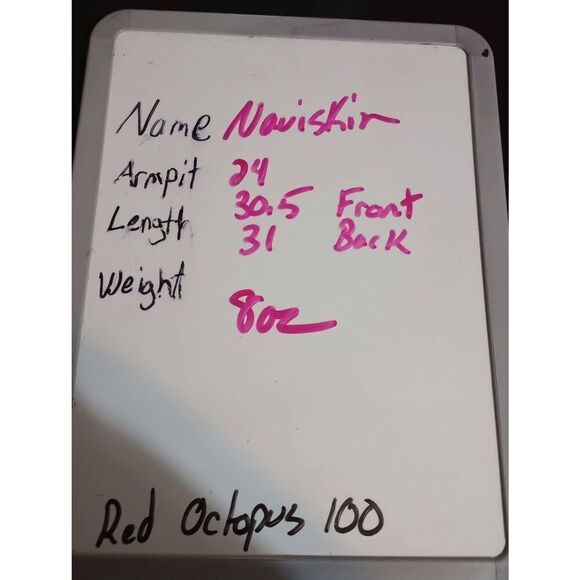 Name Naviskin
Armpit 24
Length 30.5 Front
31 Back
Weight
8oz
Red Octopus 100